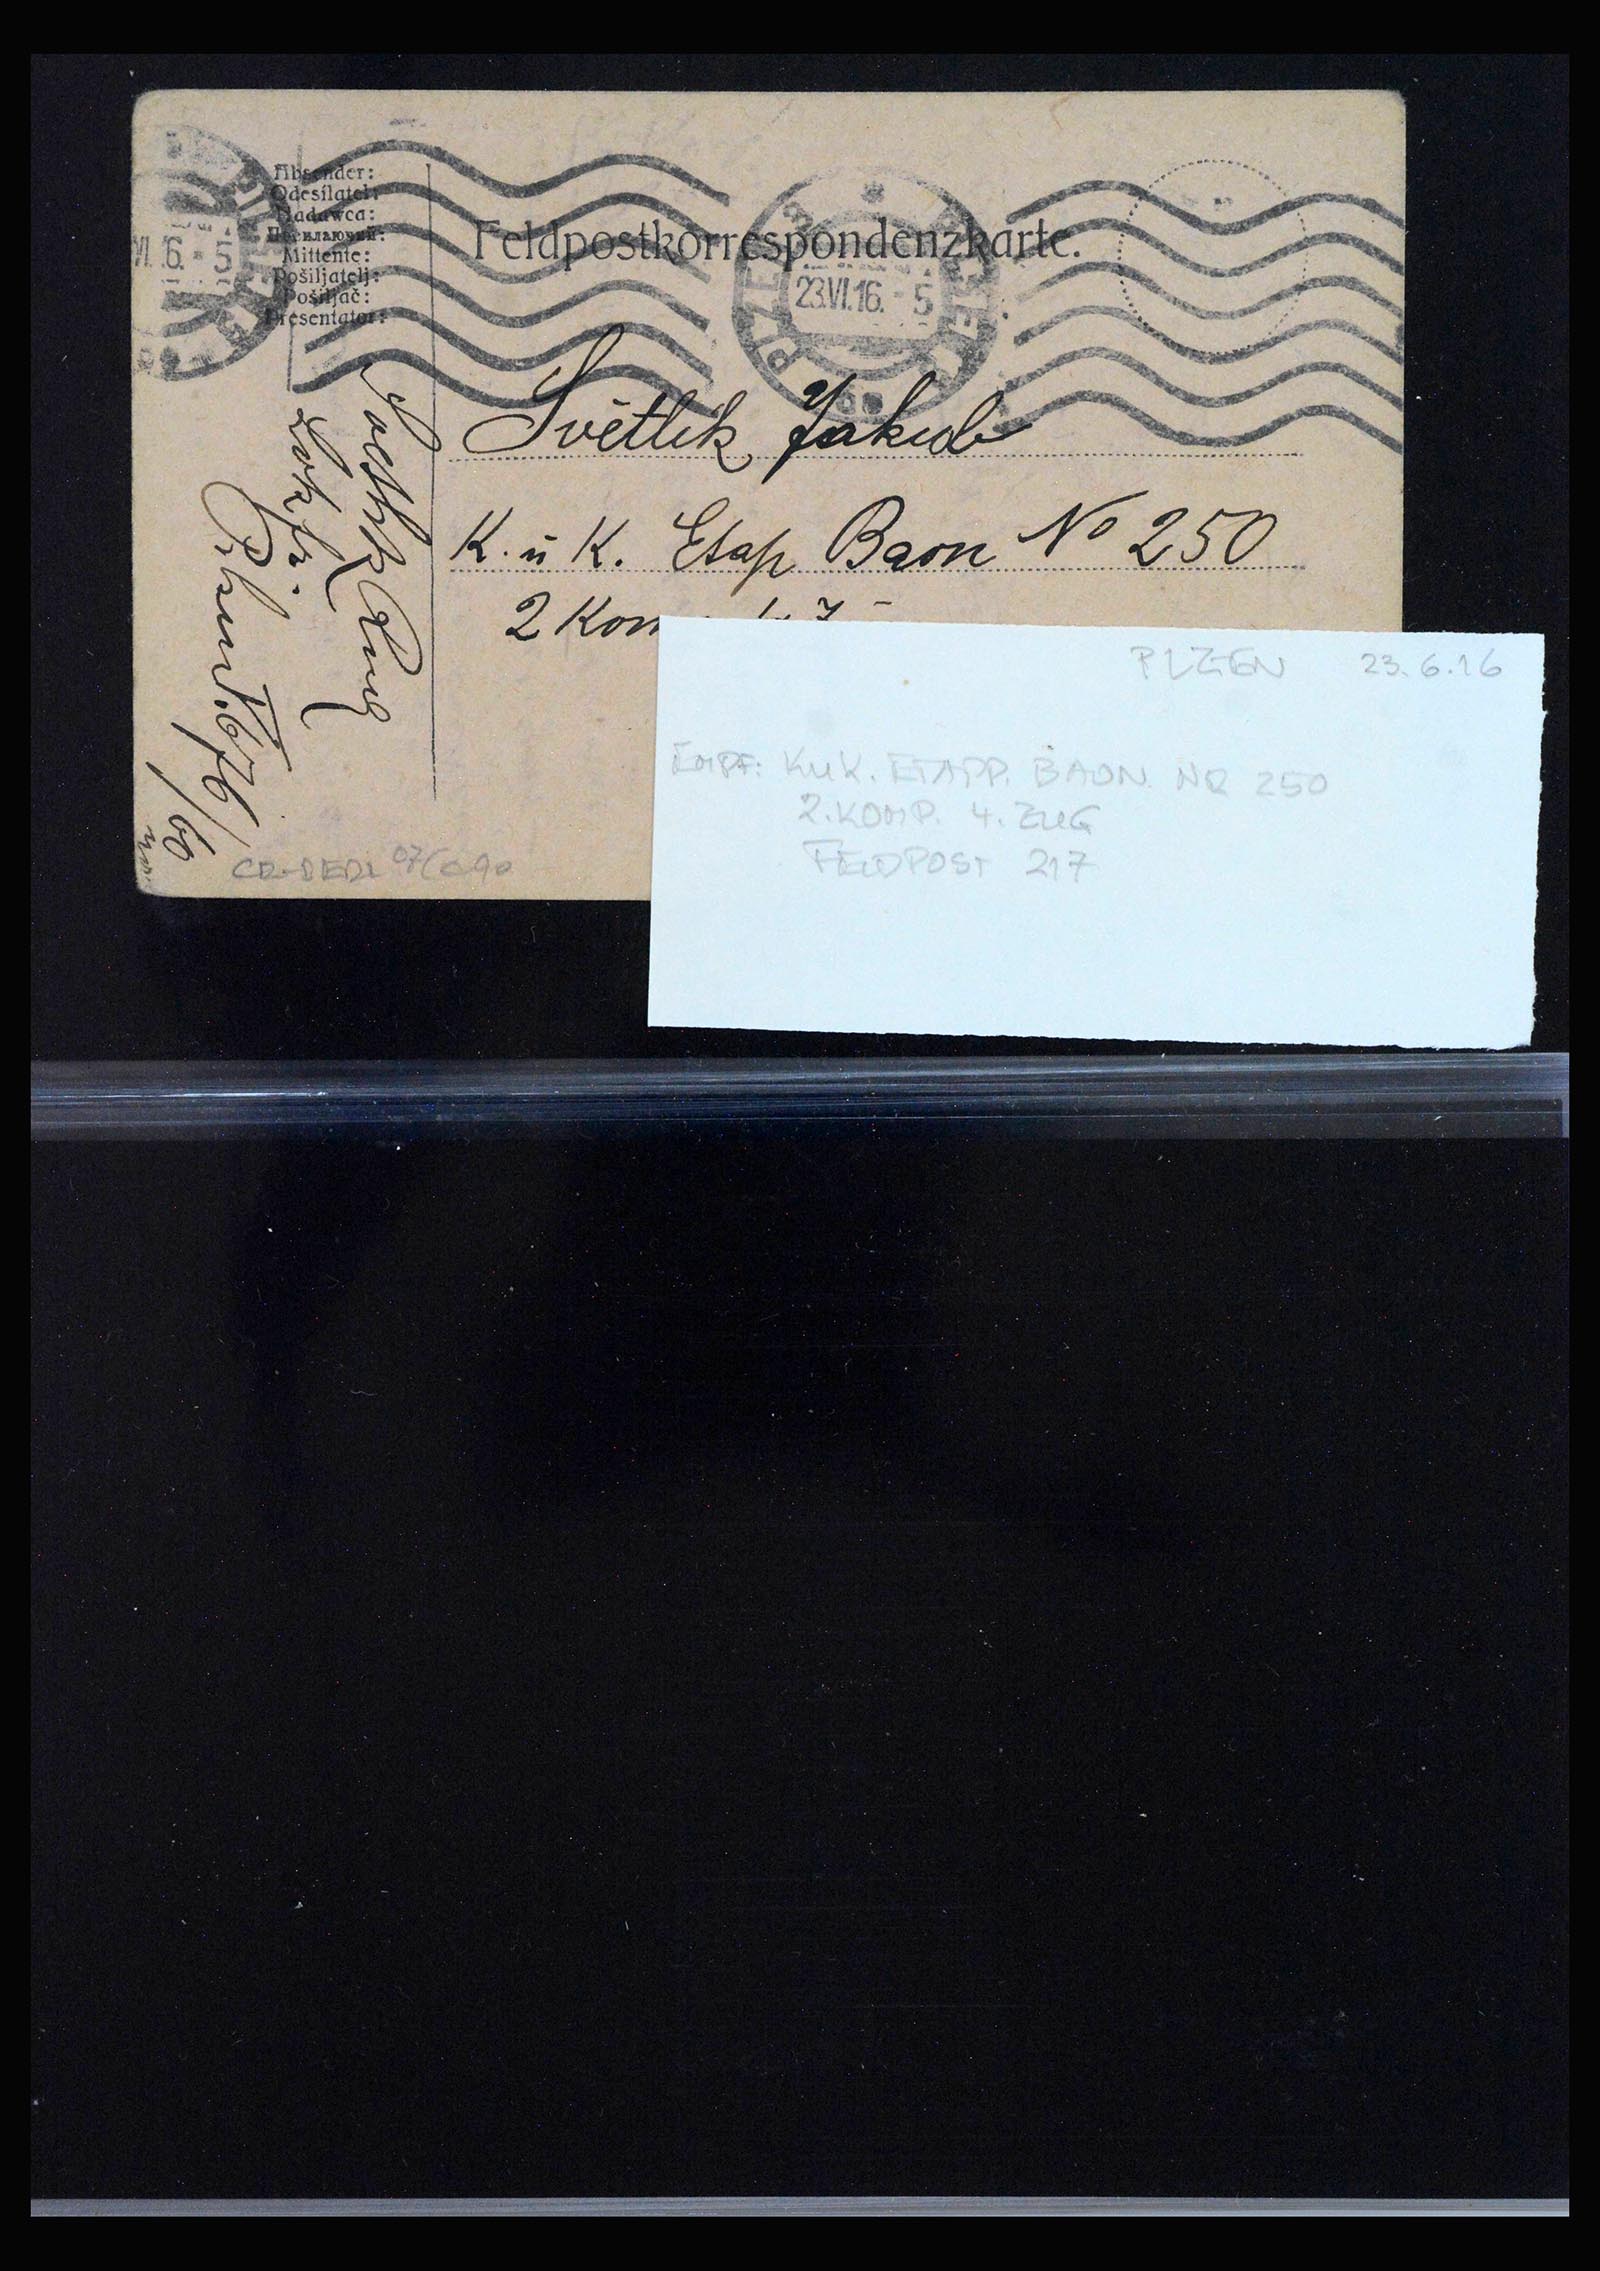 Absender:
Odesílatel:
Nadawca:
Посилаючий:
Mittente:
Pošiljatelj:
Pošiljač:
Presentator:
Feldpostkorrespondenzkarte.
23.VI.16. - 5
VI. 16. - 5
Světlík Jakub
K. u K. Etap Baon No 250
2 Kom
676/60
PLZEN 23.6.16
EMPF: KUK. ETAPP. BAON. NR 250
2. KOMP. 4. ZUG
FELDPOST 217